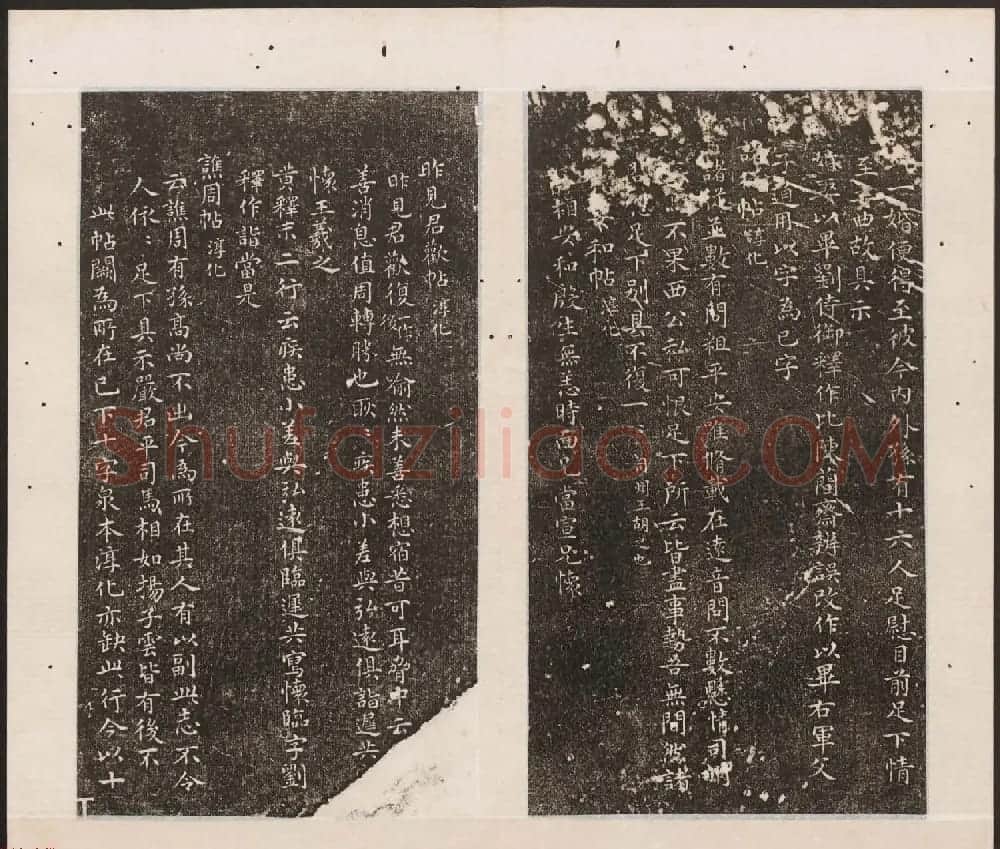 一婚便得至彼今內外孫有十六人足慰目前足下情
至委曲故具示
以畢劉侍御釋作比陳閣齋辨誤改作以畢右軍父
子通用以字為已字
諸從帖淳化
諸從並數有問粗平安唯脩載在遠音問不數懸情司州
不果西公私可恨足下所云皆盡事勢吾無間然諸
足下別具不復一一司州王胡之也
和帖淳化
相與和殷生無恙時面一當宣兄懷
昨見君歡帖淳化
昨見君歡復無喻然未善悉想宿昔可耳脅中云
善消息值周轉勝也耿耿疾患小差與弘遠俱詣遲共
懷王羲之
黃釋末二行云疾患小差與弘遠俱臨遲共寫懷臨字劉
釋作詣當是
譙周帖淳化
云譙周有孫高尚不出今為所在其人有以副此志不令
人依依足下具示嚴君平司馬相如揚子雲皆有後不
此帖闕為所在已下十字泉本淳化亦缺此行今以十
Shufaziliao.COM